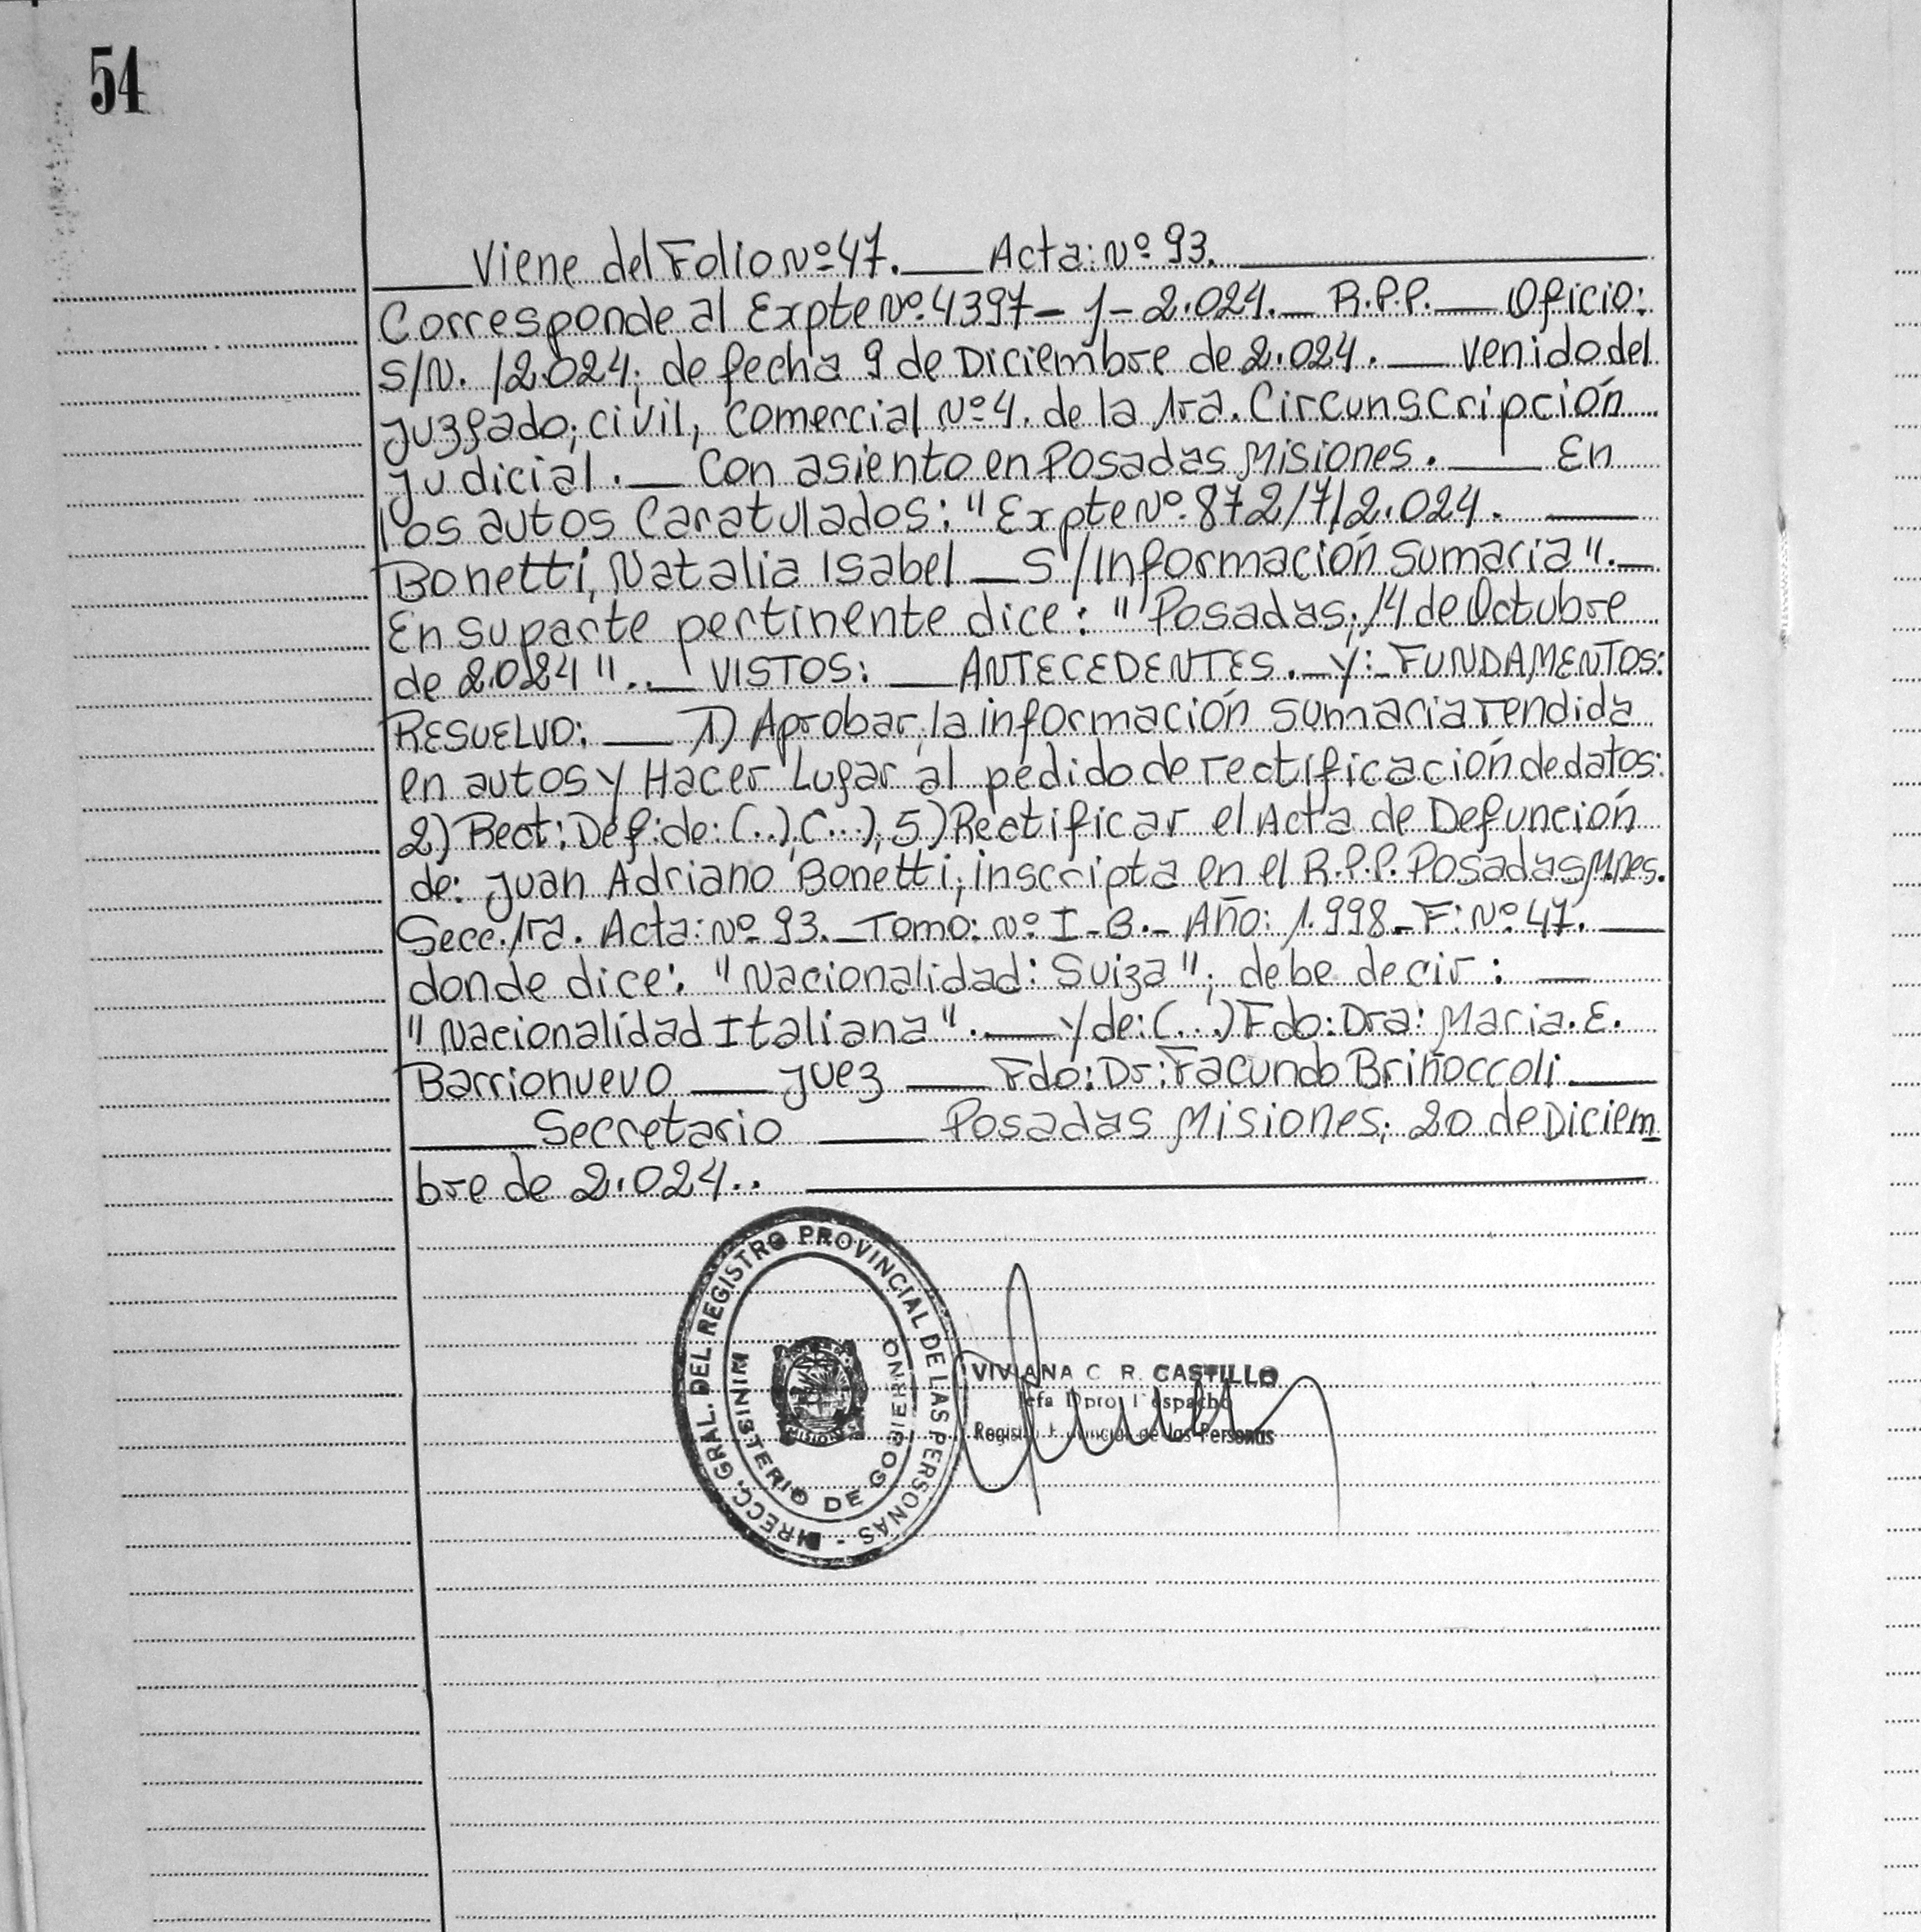 54
Viene del Folio Nº 47. Acta: Nº 93.
Corresponde al Expte Nº 4397 - 1 - 2.024. R.P.P. Oficio:
S/N. /2.024; de fecha 9 de Diciembre de 2.024. Venido del
Juzgado; civil, Comercial Nº 4. de la 1ra. Circunscripción
Judicial. Con asiento en Posadas Misiones. En
los autos Caratulados: "Expte Nº 872/7/2.024.
Bonetti, Natalia Isabel S/Información Sumaria".
En su parte pertinente dice: "Posadas; 14 de Octubre
de 2.024". VISTOS: ANTECEDENTES. Y: FUNDAMENTOS:
RESUELVO: 1) Aprobar, la información sumaria rendida
en autos y Hacer Lugar al pedido de rectificación de datos:
2) Rect: Def: de: (..), (...), 5) Rectificar el Acta de Defunción
de: Juan Adriano Bonetti; inscripta en el R.P.P. Posadas Mnes.
Secc. 1ra. Acta: Nº 93. Tomo: Nº I-B. Año: 1.998 - F: Nº 47.
donde dice: "Nacionalidad: Suiza"; debe decir:
"Nacionalidad Italiana". y de: (...) Fdo: Dra: Maria. E.
Barrionuevo Juez Fdo: Dr: Facundo Briñoccoli
Secretario Posadas Misiones; 20 de Diciem
bre de 2.024..
DIRECC. GRAL. DEL REGISTRO PROVINCIAL DE LAS PERSONAS -
MINISTERIO DE GOBIERNO
MISIONES
VIVIANA C. R. CASTILLO
Jefa Dpto. Despacho
Registro Provincial de las Personas